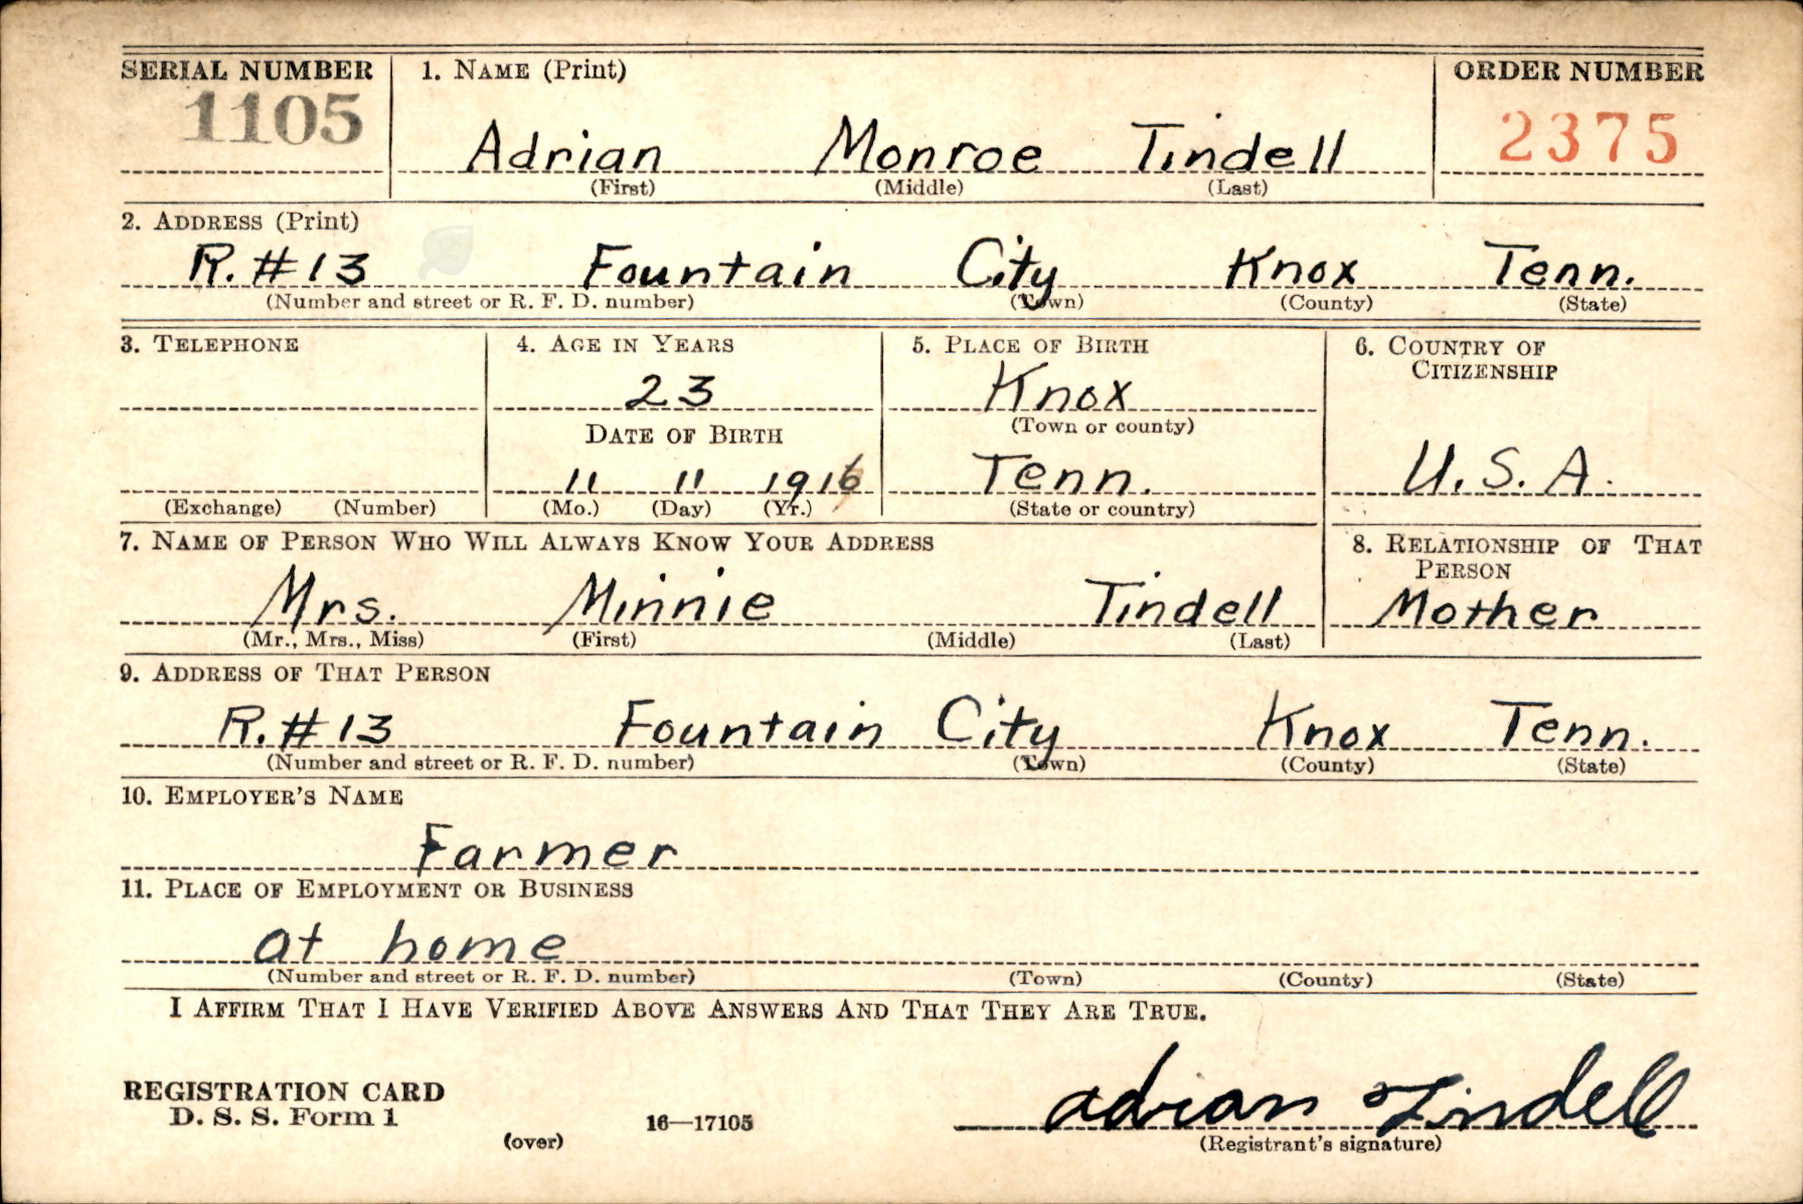 SERIAL NUMBER
1. NAME (Print)
ORDER NUMBER
1105
Adrian Monroe Tindell
2375
(First) (Middle) (Last)
2. ADDRESS (Print)
R. #13 Fountain City Knox Tenn.
(Number and street or R. F. D. number) (Town) (County) (State)
3. TELEPHONE
4. AGE IN YEARS
5. PLACE OF BIRTH
6. COUNTRY OF
CITIZENSHIP
23
Knox
(Town or county)
DATE OF BIRTH
11 11 1916
Tenn.
U.S.A.
(Exchange) (Number)
(Mo.) (Day) (Yr.)
(State or country)
7. NAME OF PERSON WHO WILL ALWAYS KNOW YOUR ADDRESS
8. RELATIONSHIP OF THAT
PERSON
Mrs. Minnie Tindell
Mother
(Mr., Mrs., Miss) (First) (Middle) (Last)
9. ADDRESS OF THAT PERSON
R. #13 Fountain City Knox Tenn.
(Number and street or R. F. D. number) (Town) (County) (State)
10. EMPLOYER'S NAME
Farmer
11. PLACE OF EMPLOYMENT OR BUSINESS
at home
(Number and street or R. F. D. number) (Town) (County) (State)
I AFFIRM THAT I HAVE VERIFIED ABOVE ANSWERS AND THAT THEY ARE TRUE.
REGISTRATION CARD
D. S. S. Form 1
(over)
16—17105
Adrian Tindell
(Registrant's signature)